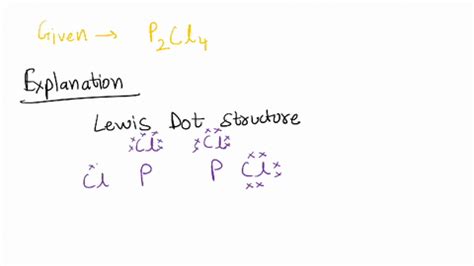 Given → P₂Cl₄
Explanation
Lewis Dot Structure
Cl Cl
Cl P P Cl